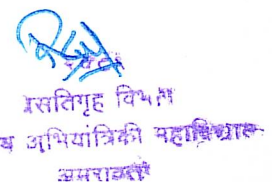 वसतिगृह विभाग
य अभियांत्रिकी महाविद्याल
अमरावती